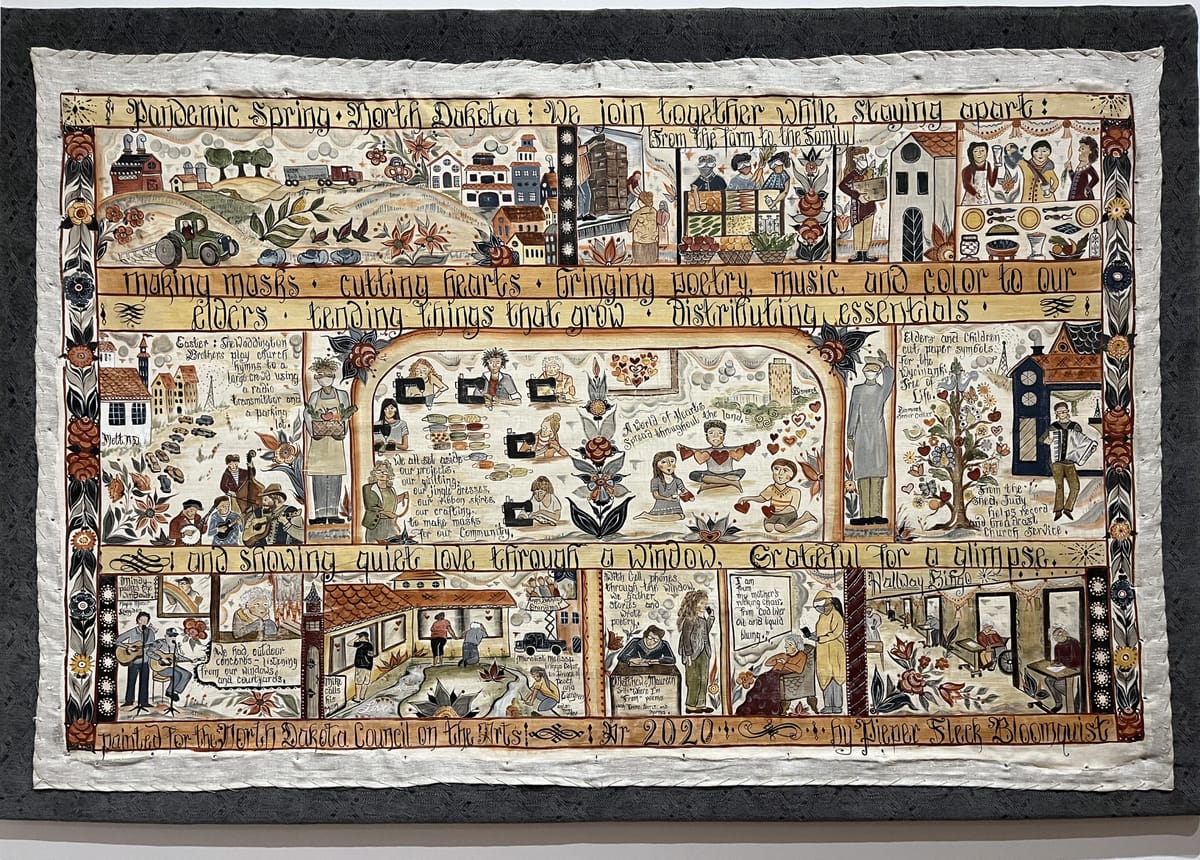 Pandemic Spring · North Dakota : We join together while staying apart :
From the farm to the Family
making masks · cutting hearts · bringing poetry, music, and color to our
elders · tending things that grow · distributing essentials ·
Easter : The Waddington
Brothers play church
hymns to a
large crowd using
a radio
transmitter and
a parking
lot.
Mott ND
We all set aside
our projects,
our quilting,
our jingle dresses,
our ribbon skirts,
our crafting,
to make masks
for our Community.
A World of Hearts
Spread throughout the land.
Elders and Children
cut paper symbols
for the
Wycinanki
Tree of
Life.
From the
shed, Judy
helps record
and broadcast
Church Service.
: and showing quiet love through a window. Grateful for a glimpse.
We had outdoor
concerts - listening
from our windows
and courtyards.
Mike
calls
his
With cell phones
through the window
we gather
stories and
wrote
poetry.
Matthew & Maureen
"Where I'm
From" poems
I am
from
my mother's
rocking chair,
from cod liver
oil and liquid
bluing.
Hallway Bingo
painted for the North Dakota Council on the Arts : År 2020 : by Pieper Fleck Bloomquist